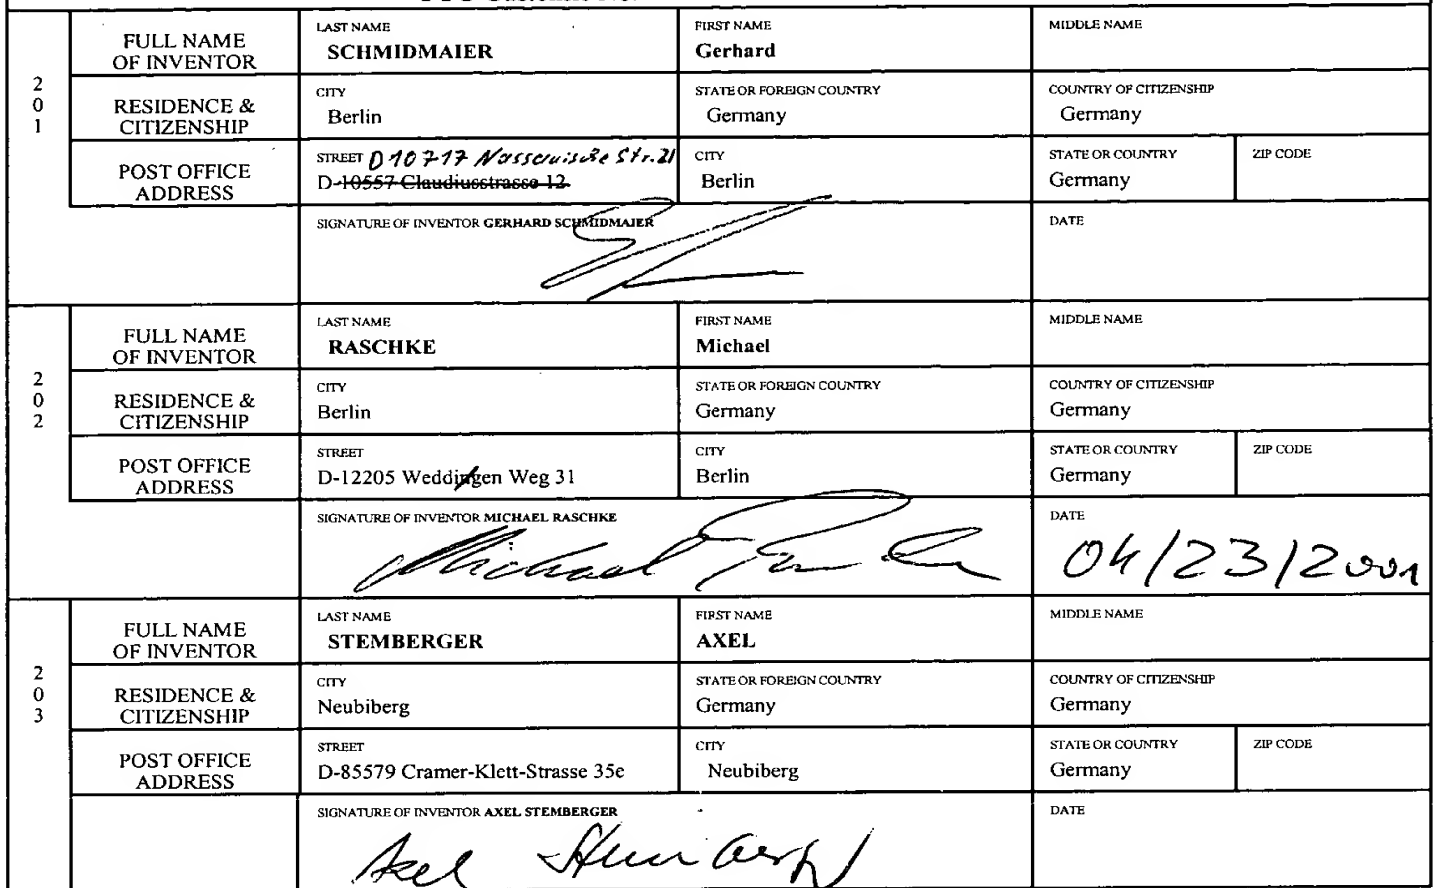 201
FULL NAME OF INVENTOR
LAST NAME
SCHMIDMAIER
FIRST NAME
Gerhard
MIDDLE NAME
RESIDENCE & CITIZENSHIP
CITY
Berlin
STATE OR FOREIGN COUNTRY
Germany
COUNTRY OF CITIZENSHIP
Germany
POST OFFICE ADDRESS
STREET D 10717 Nassauische Str. 21
D-10557 Claudiusstrasse 12
CITY
Berlin
STATE OR COUNTRY
Germany
ZIP CODE
SIGNATURE OF INVENTOR GERHARD SCHMIDMAIER
DATE
202
FULL NAME OF INVENTOR
LAST NAME
RASCHKE
FIRST NAME
Michael
MIDDLE NAME
RESIDENCE & CITIZENSHIP
CITY
Berlin
STATE OR FOREIGN COUNTRY
Germany
COUNTRY OF CITIZENSHIP
Germany
POST OFFICE ADDRESS
STREET
D-12205 Weddingen Weg 31
CITY
Berlin
STATE OR COUNTRY
Germany
ZIP CODE
SIGNATURE OF INVENTOR MICHAEL RASCHKE
Michael
DATE
04/23/2001
203
FULL NAME OF INVENTOR
LAST NAME
STEMBERGER
FIRST NAME
AXEL
MIDDLE NAME
RESIDENCE & CITIZENSHIP
CITY
Neubiberg
STATE OR FOREIGN COUNTRY
Germany
COUNTRY OF CITIZENSHIP
Germany
POST OFFICE ADDRESS
STREET
D-85579 Cramer-Klett-Strasse 35e
CITY
Neubiberg
STATE OR COUNTRY
Germany
ZIP CODE
SIGNATURE OF INVENTOR AXEL STEMBERGER
Axel Stemberger
DATE